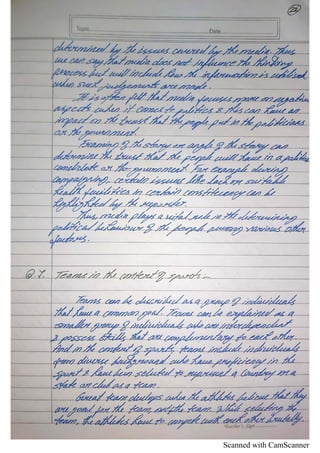 22
Topic
Date
determined by the issues covered by the media. Thus
we can say that media does not influence the thinking
process but will include how the information is utilized
when such judgements are made.
It is often felt that media focuses more on negative
aspects when it comes to politics & this can have an
impact on the trust that the people put in the politicians
or the government.
Framing of the story or angle of the story can
determine the trust that the people will have in a political
candidate or the government. For example during
campaigning, certain issues like lack of suitable
health facilities in certain constituency can be
highlighted by the reporter.
Thus, media plays a vital role in the determining
political behaviour of the people among various other
factors.
Q 7. Teams in the context of sports:-
Teams can be described as a group of individuals
that have a common goal. Teams can be explained as a
smaller group of individuals who are interdependent
& possess skills that are complementary to each other.
And in the context of sports, teams include individuals
from diverse background who have proficiency in the
sport & have been selected to represent a country or a
state or club as a team.
Great team develops when the athletes believe that they
are good for the team, not the team. While selecting the
team, the athletes have to compete with each other brutally.
Teacher's Sign
Scanned with CamScanner